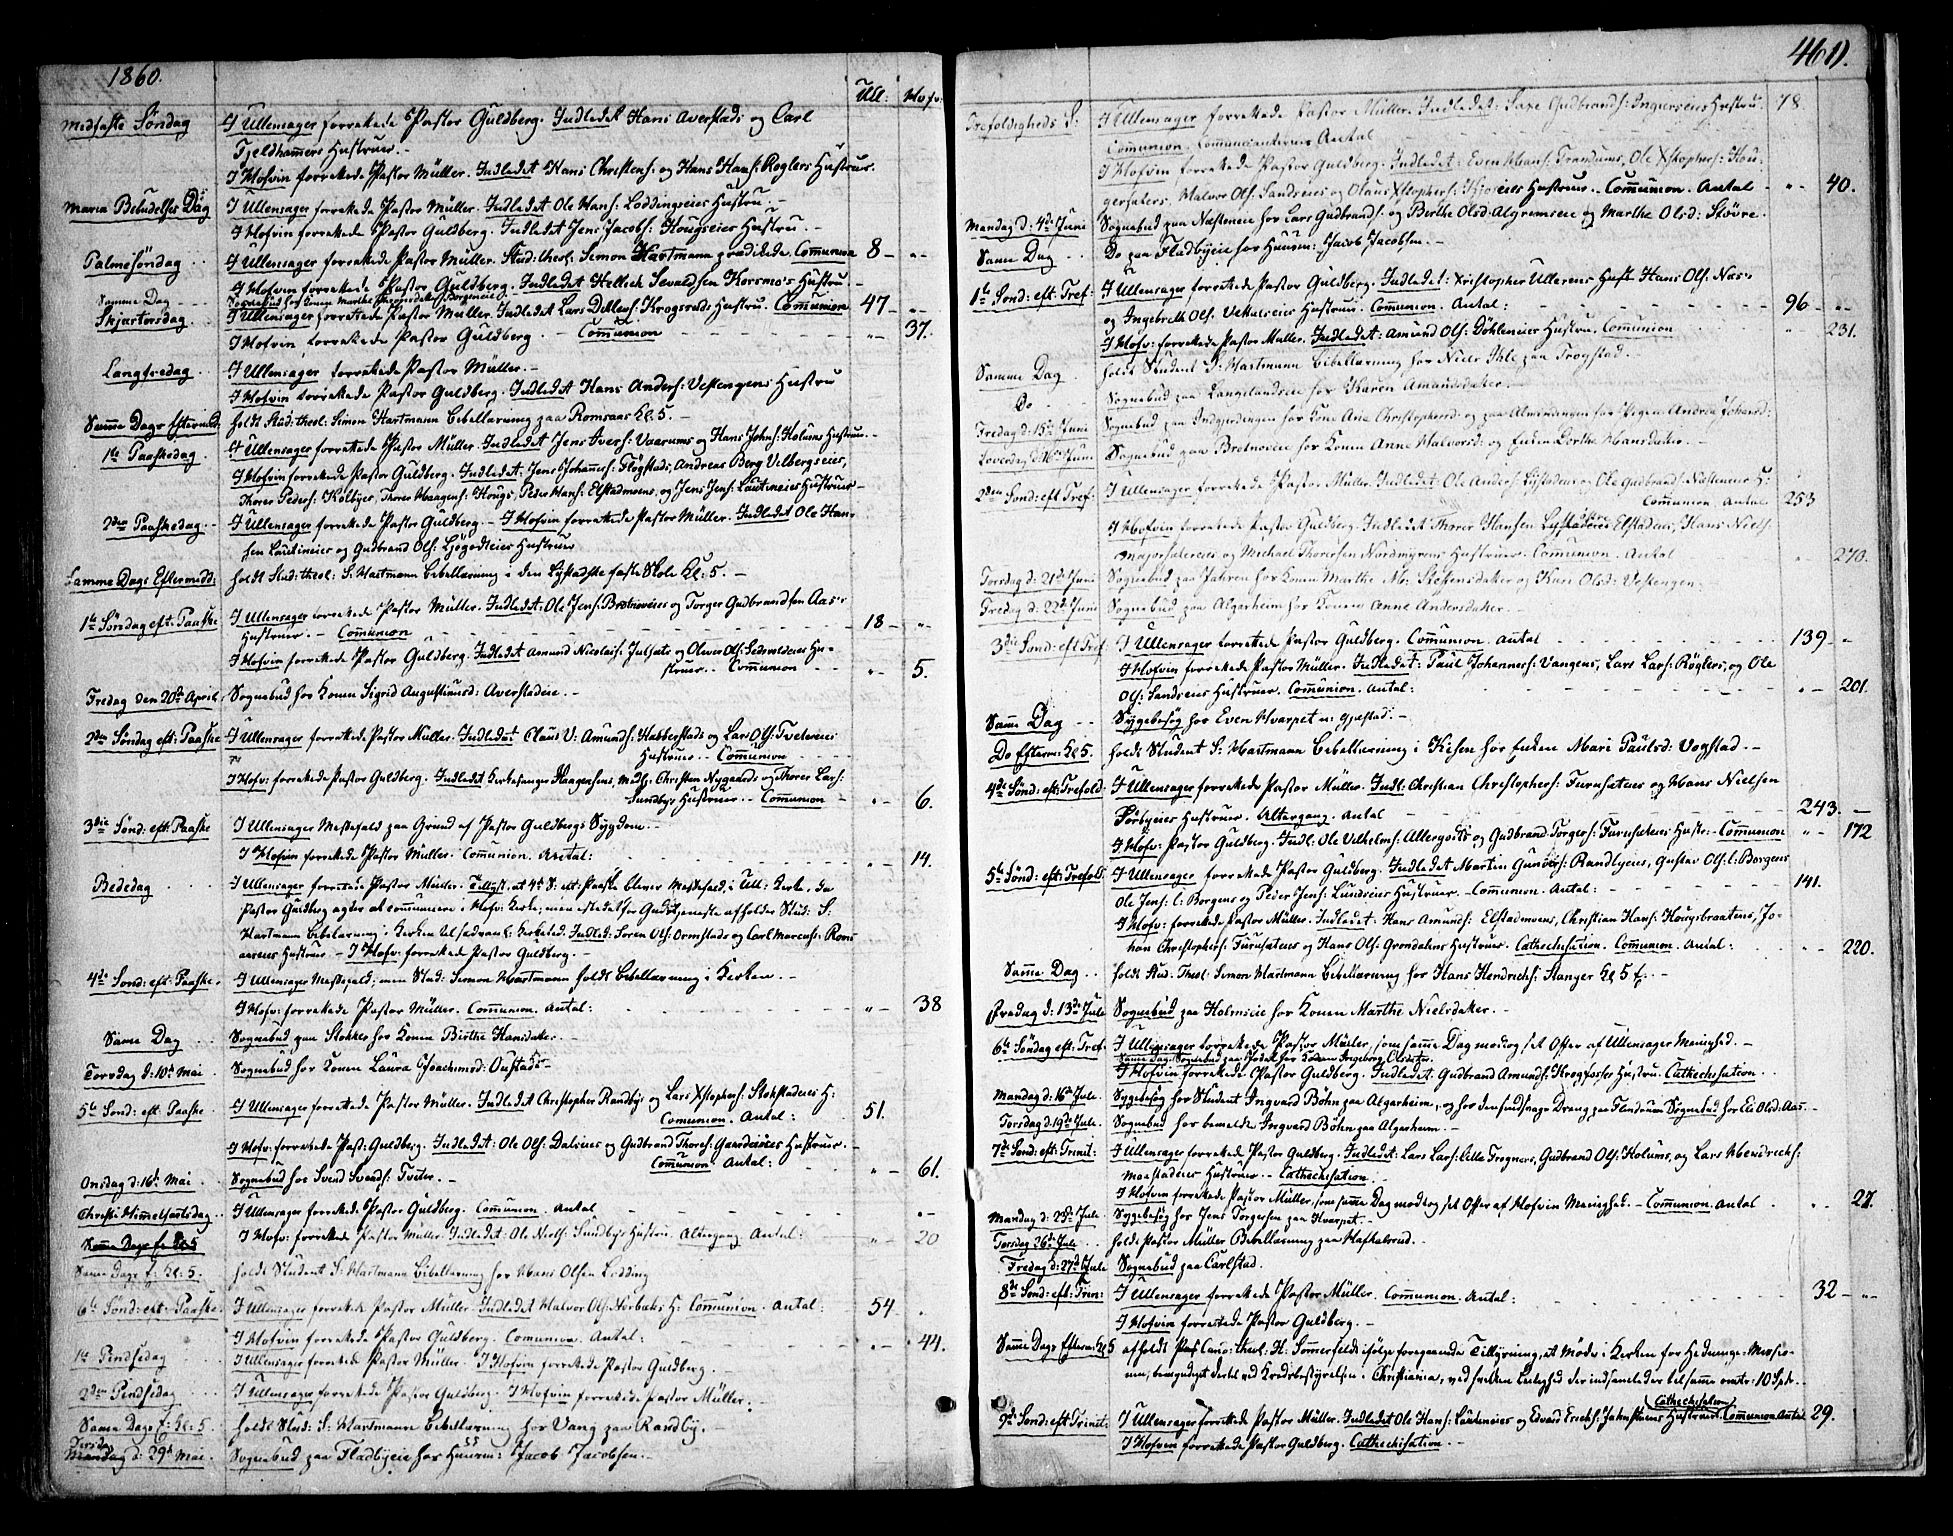 1860.
Ull: Hofv:
Midfaste Söndag I Ullensager forrettede Pastor Guldberg. Indledet Hans Averstads og Carl
Fjeldhammers Hustruer. -
I Hofvin forrettede Pastor Müller. Indledet Hans Christens: og Hans Hans: Roglers Hustruer.
Maria Bebudelses Dag I Ullensager forrettede Pastor Müller. Indledet Ole Hans: Loddingseies Hustru. -
I Hofvin forrettede Pastor Guldberg. Indledet Jens Jacobs: Hougseies Hustru. -
Palmesöndag I Ullensager forrettede Pastor Müller. Stud. theol: Semon Hartmann prædikede. Communion 8 - "-
I Hofvin forrettede Pastor Guldberg. Indledet Hellek Sevaldsen Korsmo's Hustru -
Samme Dag Sognebud hos Konen Marthe
Skjærtorsdag I Ullensager forrettede Pastor Müller. Indledet Lars Ditlevs: Krogsruds Hustru. Communion 47 - "-
I Hofvin forrettede Pastor Guldberg. - Communion "- 37.
Langfredag I Ullensager forrettede Pastor Müller. -
I Hofvin forrettede Pastor Guldberg. Indledet Hans Anders: Vestengens Hustru
Samme Dags Eftermid: holdt Stud: theol: Simon Hartmann Bibellæsning paa Romsaas Kl: 5. -
1ste Paaskedag I Ullensager forrettede Pastor Müller. Indledet Jens Ivers: Vaerums og Hans Johns: Holums Hustruer. -
I Hofvin forrettede Pastor Guldberg. Indledet: Jens Johannes: Flögstads, Andreas Berg Velbergseies,
Thorer Peders: Kolbyes, Thorer Haagens: Hougs, Peder Hans: Elstadmoens, og Jens Jens: Lautineies Hustruer -
2den Paaskedag. - I Ullensager forrettede Pastor Guldberg. - I Hofvin forrettede Pastor Müller. Indledet Ole Han-
sen Lautineies og Gudbrand Ols: Ljögodteies Hustruer
Samme Dags Eftermidd: holdt Stud: theol: S: Hartmann Bibellæsning i den Lystadske faste Skole Kl: 5. -
1ste Söndag eft: Paaske I Ullensager forrettede Pastor Müller. Indledet: Ole Jens: Brotnoveies og Torger Gudbrandsen Aas's
Hustruer. - Communion 18 - "-
I Hofvin forrettede Pastor Guldberg. Indledet Amund Nicolais: Julsets og Oliver Ols: Hu-
struer. - Communion "- 5.
Fredag den 20de April. Sognebud hos Konen Sigrid Augustinusd: Averstadeie. -
2den Söndag eft: Paaske I Ullensager forrettede Pastor Müller. Indledet Claus V: Amunds: Habberstads og Lars Ols: Tveteneies
Hustruer. - Communion
I Hofv: forrettede Pastor Guldberg. Indledet Kirkesanger Haagensens, Christen Nygaards og Thorer Lars:
Sundbys Hustruer. - Communion "- 6.
3die Sönd: eft: Paaske I Ullensager Messefald paa Grund af Pastor Guldbergs Sygdom. -
I Hofvin forrettede Pastor Müller. Communion. Antal: "- 14.
Bededag I Ullensager forrettede Pastor Müller. Tillyst, at 4de S: eft: Paaske bliver Messefald i Ull: Kirke, da
Pastor Guldberg agter at communicere i Hofv: Kirke; men istedetfor Gudstjeneste afholder Stud: S:
Hartmann Bibellæsning i Kirken til sædvanl: Kirketid. Indled: Soren Ols: Ormstads og Carl Marcus: Roms
aaseies Hustruer - I Hofv: forrettede Pastor Guldberg. -
4de Sönd: eft: Paaske. I Ullensager Messefald: men Stud: Semon Hartmann holdt Bibellæsning i Kirken. -
I Hofv: forrettede Pastor Müller. Communion. Antal: "- 38
Samme Dag Sognebud paa Stokker hos Konen Birthe Hansdater. -
Torsdag d: 10de Mai Sognebud hos Konen Laura Joachimsd: Oustad. -
5te Sönd: eft: Paaske I Ullensager forrettede Pastor Müller. Indledet Christopher Randbys og Lars Xstophers: Stokstadeies H:
Communion. Antal: 51.
I Hofv: forrettede Past: Guldberg. Indledet: Ole Ols: Dalseies og Gudbrand Thores: Hustruer. -
Communion Antal: "- 61.
Onsdag d: 16de Mai Sognebud hos Svend Svends: Tveter. -
Christi Himmelfartsdag I Ullensager forrettede Pastor Guldberg. Communion. Antal "-
Samme Dags E. Kl 5 I Hofv: forrettede Pastor Müller. Indledet: Ole Niels: Sundbys Hustru. Altergang. Antal: "- 20
Samme Dags E: Kl: 5. holdt Student S: Hartmann Bibellæsning hos Hans Olsen Lodding
6te Sönd: eft: Paaske I Ullensager forrettede Pastor Müller - Indledet Halvor Ols: Norbaks H: Communion. Antal: 54.
I Hofvin forrettede Pastor Guldberg. Communion. Antal: "- 44.
1ste Pindsedag I Ullensager forrettede Pastor Müller. I Hofvin forrettede Pastor Guldberg.
2den Pindsedag I Ullensager forrettede Pastor Guldberg. I Hofvin forrettede Pastor Müller.
Samme Dags E: Kl: 5 holdt Stud: S: Hartmann Bibellæsning hos Vang paa Randby. -
Tirsdag
Mandag d: 29de Mai. Sognebud paa Fladbyeie hos Huusm: Jacob Jacobsen. -
461).
Trefoldigheds S: I Ullensager forrettede Pastor Müller. Indledet: Saxe Gudbrands: Ingierseies Hustru. 78.
Communion. Communicanternes Antal
I Hofvin forrettede Pastor Guldberg. Indledet: Even Hans: Trandums, Ole Xstophers: Hou-
gersæters, Halvor Ols: Sandseies og Olaus Xstophers: Hustruer. Communion. Antal "- 40.
Mandag d: 4de Juni Sognebud paa Næsteneie hos Lars Gudbrands: og Berthe Olsd: Algrimseie og Marthe Olsd: Stövre.
Samme Dag Do paa Fladbyeie hos Huusm: Jacob Jacobsen. -
1ste Sönd: eft: Tref: I Ullensager forrettede Pastor Guldberg. Indledet: Xristopher Ullerens Hust Hans Ols: Næs's
og Ingebreth Ols: Vetalseies Hustruer. Communion. Antal: 96 - "-
I Hofv: forrettede Pastor Müller. Indledet: Amund Ols: Döhleneies Hustru. Communion " 231.
Samme Dag holdt Student S: Hartmann Bibellæsning hos Niels Ihle paa Trogstad.
Do Sognebud paa Langelandseie hos Karen Amundsdater.
Fredag d: 15de Juni Sognebud paa Indgjerdingen hos Kone Ane Christophersd: og paa Almindingen hos Pigen Andrea Johansd:
Loverdag d: 16de Juni Sognebud paa Brotnoveie hos Konen Anne Halvorsd: og Enken Dorthe Hansdater. -
2den Sönd: eft: Tref: I Ullensager forrettede Pastor Müller. Indledet: Ole Anders: Lystadeies og Ole Gudbrands: Næsteneies H:
Communion Antal 253
I Hofvin forrettede Pastor Guldberg. Indledet Thorer Hansen Elstadeies, Hans Niels:
Majorsætereies og Michael Thoresen Nordmyrens Hustruer. Communion. Antal " 270.
Torsdag d: 21de Juni Sognebud paa Jahren hos Konen Marthe Ms: Steffensdater og Kari Olsd: Vestengen:
Fredag d: 22de Juni Sognebud paa Algarheim hos Konen Anne Andersdater. -
3die Sönd: eft Tref. I Ullensager forrettede Pastor Guldberg. Communion. Antal 139 -
I Hofvin forrettede Pastor Müller. Indledet: Paul Johannes: Vangens, Lars Lars: Röglers, og Ole
Ols: Sandseies Hustruer. Communion. Antal: "- 201.
Samme Dag Sygebesög hos Even Hvarpet u: Gjestad. -
Do Efterm: Kl 5. holdt Student S: Hartmann Bibellæsning i Kisen hos Enken Mari Paulsd: Vogstad. -
4de Sönd: eft: Trefold: I Ullensager forrettede Pastor Müller. Indl: Christian Christophers: Furusæteies og Hans Nielsen
Sörbyeies Hustruer. Altergang. Antal 243. -
I Hofv: Pastor Guldberg. Indl: Ole Vilhelms: Allergodts og Gudbrand Torgers: Furusæteies Hustr: - Communion "- 172
5te Sönd: eft: Trefold: I Ullensager forrettede Pastor Guldberg. Indledet Martin Gunders: Randbyeies, Gustav Ols: l: Borgens
Ole Jens: l: Borgens og Peder Jens: Lundseies Hustruer. - Communion. Antal: 141.
I Hofv: forrettede Pastor Müller. Indledet: Hans Amunds: Elstadmoens, Christian Hans: Hougsbraatens, Jo-
han Christophers: Furusæteies og Hans Ols: Grondalens Hustruer. Cathechisation. Communion. Antal: "- 220.
Samme Dag holdt Stud: Theol: Simon Hartmann Bibellæsning hos Hans Hendrichs: Stanger Kl 5 E. -
Fredag d: 13de Juli Sognebud paa Holmseie hos Konen Marthe Nielsdater. -
6te Söndag eft: Tref: I Ullensager forrettede Pastor Müller, som samme Dag modtog sit Offer af Ullensager Menighed. -
Samme Dag: Sognebud paa hos Konen Ingeborg Olsdater.
I Hofvin forrettede Pastor Guldberg. Indledet: Gudbrand Amunds: Krogfosses Hustru. Cathechisation.
Mandag d: 16de Juli Sygebesög hos Student Ingvard Böhn paa Algarheim, og hos den sindssvage Dreng paa Flindrum Sognebud hos Eli Olsd: Aas. -
Torsdag d. 19de Juli. Sognebud hos bemeldte Ingvard Böhn paa Algarheim. -
7de Sönd: eft: Trinit: I Ullensager forrettede Pastor Guldberg. Indledet: Lars Lars: Lille Trogners, Gudbrand Ols: Holums, og Lars Hendrichs:
Moestadeies Hustruer. - Cathechisation. -
I Hofvin forrettede Pastor Müller, som samme Dag modtog sit Offer af Hofvin Menighed. - Communion. Antal "- 27.
Mandag d: 23de Juli Sygebesög hos Jens Torgersen paa Hvarpet. -
Torsdag 26de Juli holdt Pastor Müller Bibellæsning paa Hafsalsrud. -
Fredag d: 27de Juli Sognebud paa Carlstad.
8de Sönd: eft: Trin: I Ullensager forrettede Pastor Müller. Communion. Antal: 32 - "-
I Hofvin forrettede Pastor Guldberg. -
Samme Dags Efterm: Kl 5 afholdt Cand: theol: H: Sommerfeldt ifölge foregaaende Tillysning, et Möde i Kirken for Hedninge-Missio-
nen, bemyndiget dertil ved Kredsbestyrelsen i Christiania, ved hvilken Leilighed der indsamledes tilsammen omtr: 10 Spd. -
Cathechisation
9de Sönd: eft Trinit: I Ullensager forrettede Pastor Müller. Indledet Ole Hans: Lautineies og Edvard Erichs: Jahnstuens Hustruer. Communion. Antal 29.
I Hofvin forrettede Pastor Guldberg. Cathechisation. -